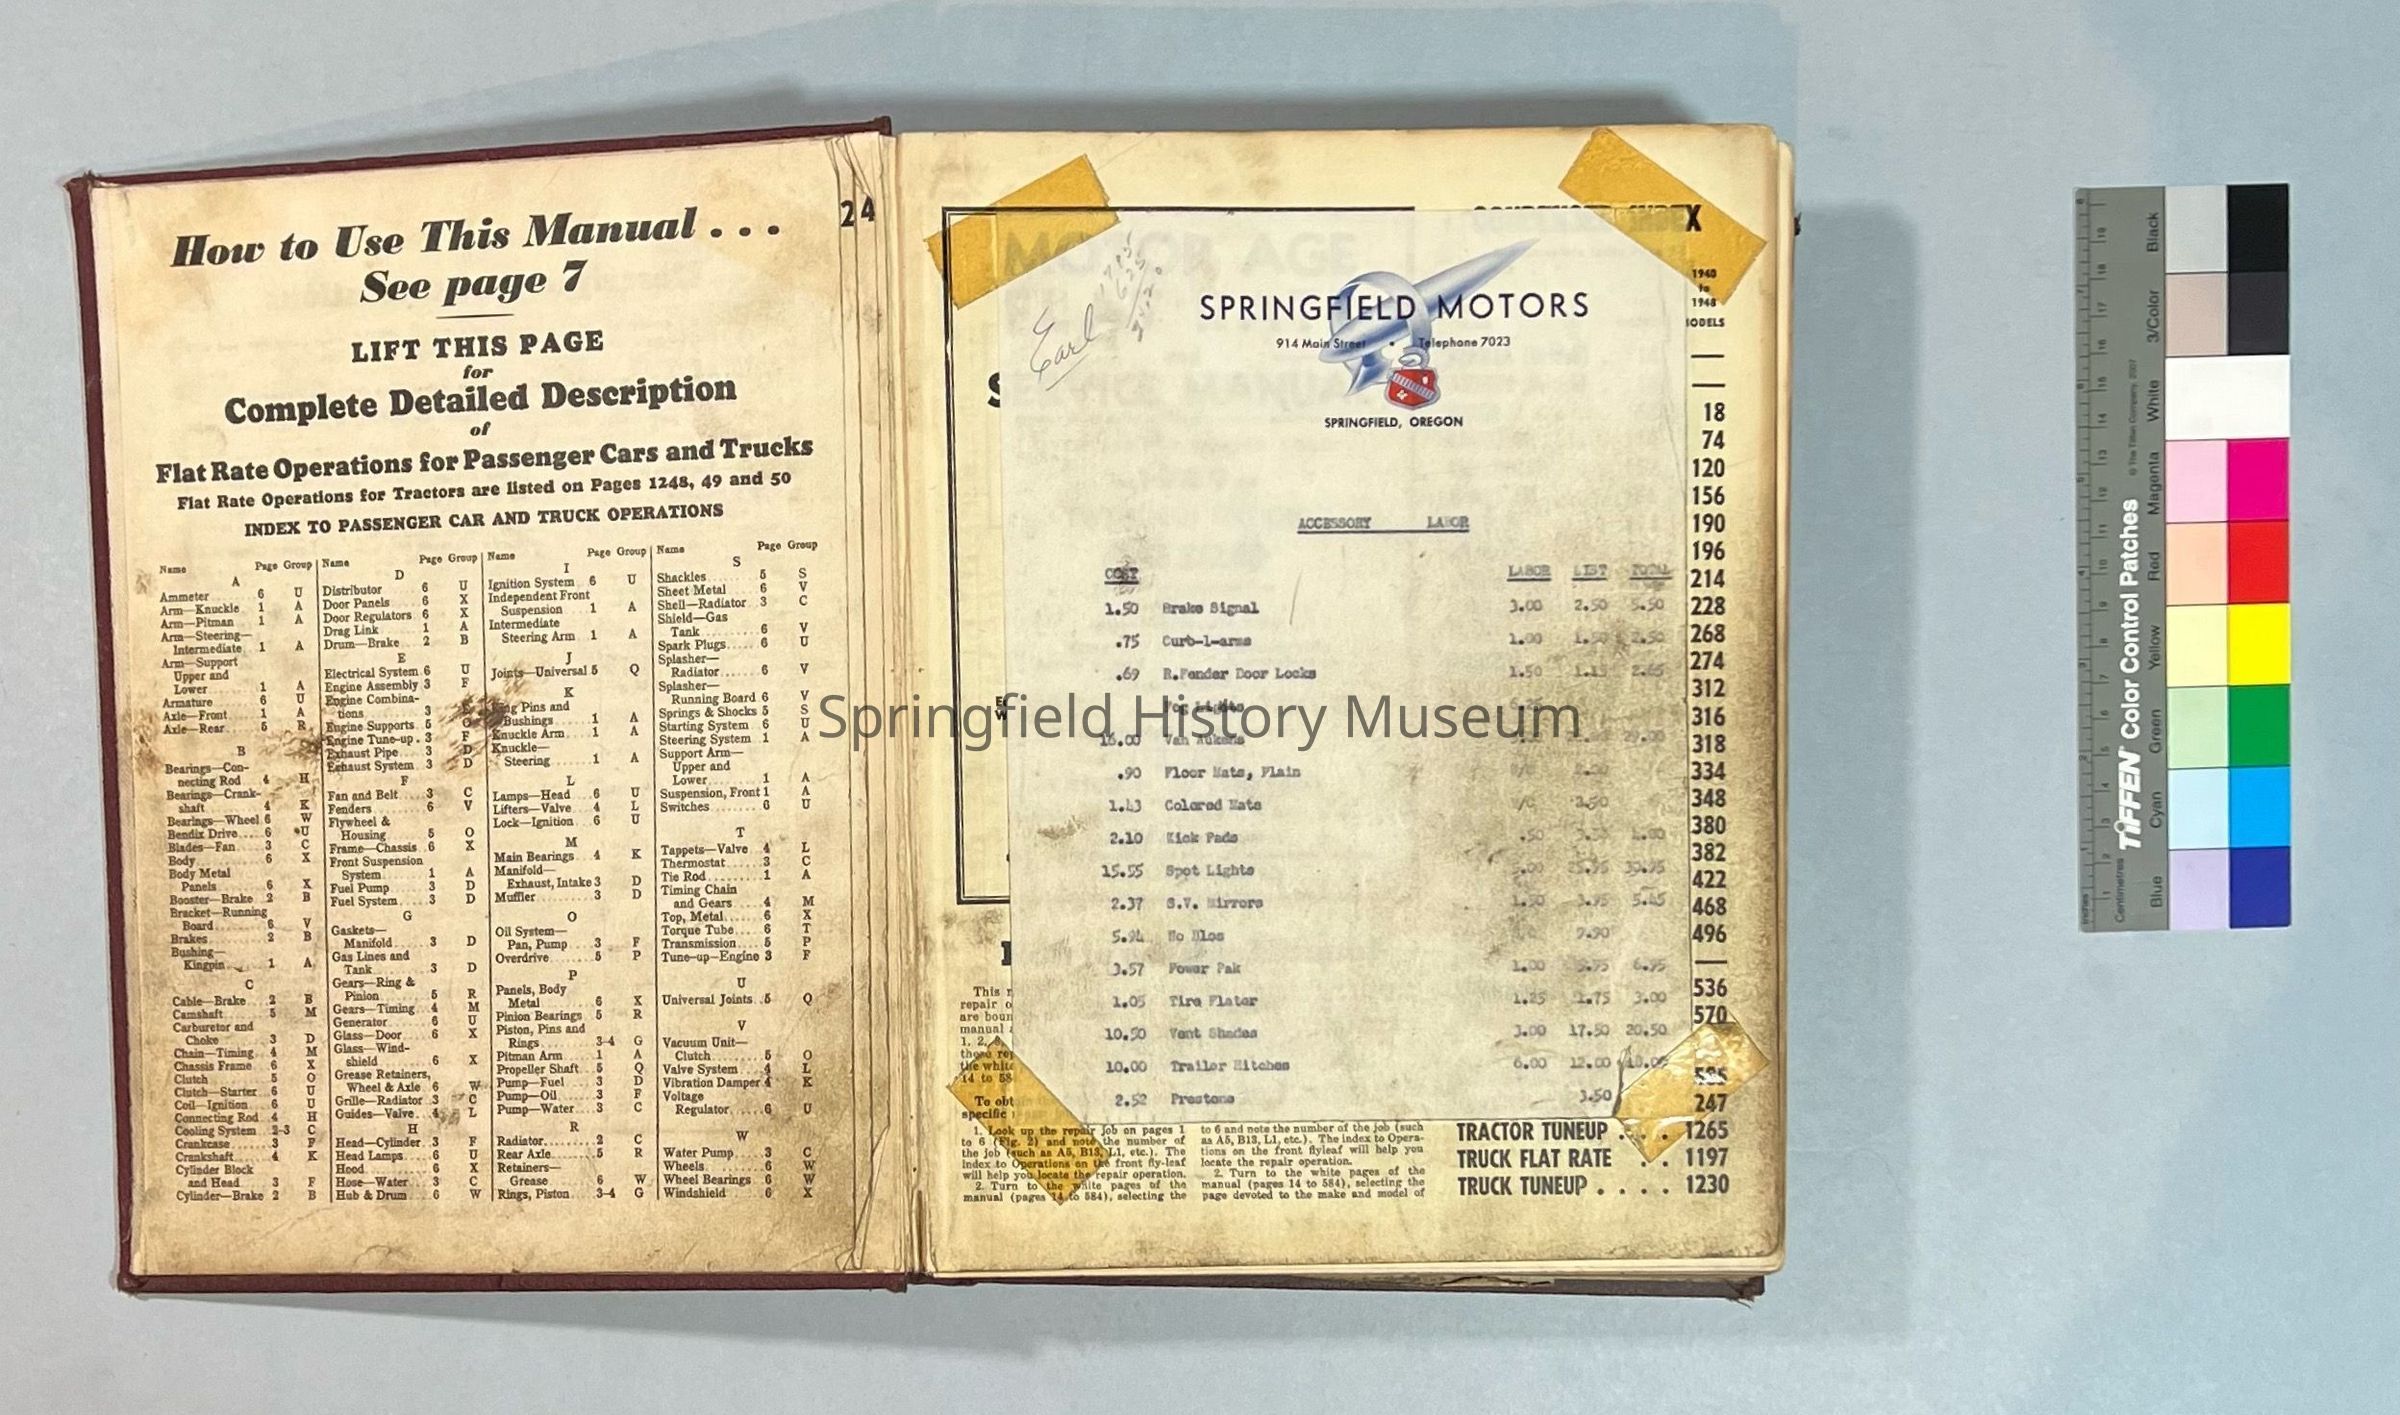 How to Use This Manual . . .
See page 7
LIFT THIS PAGE
for
Complete Detailed Description
of
Flat Rate Operations for Passenger Cars and Trucks
Flat Rate Operations for Tractors are listed on Pages 1248, 49 and 50
INDEX TO PASSENGER CAR AND TRUCK OPERATIONS
Name Page Group
A
Ammeter 6 U
Arm—Knuckle 1 A
Arm—Pitman 1 A
Arm—Steering—
Intermediate 1 A
Arm—Support
Upper and
Lower 1 A
Armature 6 U
Axle—Front 1 A
Axle—Rear 5 R
B
Bearings—Con-
necting Rod 4 H
Bearings—Crank-
shaft 4 K
Bearings—Wheel 6 W
Bendix Drive 6 U
Blades—Fan 3 C
Body 6 X
Body Metal
Panels 6 X
Booster—Brake 2 B
Bracket—Running
Board 6 V
Brakes 2 B
Bushing—
Kingpin 1 A
C
Cable—Brake 2 B
Camshaft 5 M
Carburetor and
Choke 3 D
Chain—Timing 4 M
Chassis Frame 6 X
Clutch 5 O
Clutch—Starter 6 U
Coil—Ignition 6 U
Connecting Rod 4 H
Cooling System 2-3 C
Crankcase 3 F
Crankshaft 4 K
Cylinder Block
and Head 3 F
Cylinder—Brake 2 B
Name Page Group
D
Distributor 6 U
Door Panels 6 X
Door Regulators 6 X
Drag Link 1 A
Drum—Brake 2 B
E
Electrical System 6 U
Engine Assembly 3 F
Engine Combina-
tions 3
Engine Supports 5 O
Engine Tune-up 3 F
Exhaust Pipe 3 D
Exhaust System 3 D
F
Fan and Belt 3 C
Fenders 6 V
Flywheel &
Housing 5 O
Frame—Chassis 6 X
Front Suspension
System 1 A
Fuel Pump 3 D
Fuel System 3 D
G
Gaskets—
Manifold 3 D
Gas Lines and
Tank 3 D
Gears—Ring &
Pinion 5 R
Gears—Timing 4 M
Generator 6 U
Glass—Door 6 X
Glass—Wind-
shield 6 X
Grease Retainers,
Wheel & Axle 6 W
Grille—Radiator 3 C
Guides—Valve 4 L
H
Head—Cylinder 3 F
Head Lamps 6 U
Hood 6 X
Hose—Water 3 C
Hub & Drum 6 W
Name Page Group
I
Ignition System 6 U
Independent Front
Suspension 1 A
Intermediate
Steering Arm 1 A
J
Joints—Universal 5 Q
K
King Pins and
Bushings 1 A
Knuckle Arm 1 A
Knuckle—
Steering 1 A
L
Lamps—Head 6 U
Lifters—Valve 4 L
Lock—Ignition 6 U
M
Main Bearings 4 K
Manifold—
Exhaust, Intake 3 D
Muffler 3 D
O
Oil System—
Pan, Pump 3 F
Overdrive 5 P
P
Panels, Body
Metal 6 X
Pinion Bearings 5 R
Piston, Pins and
Rings 3-4 G
Pitman Arm 1 A
Propeller Shaft 5 Q
Pump—Fuel 3 D
Pump—Oil 3 F
Pump—Water 3 C
R
Radiator 2 C
Rear Axle 5 R
Retainers—
Grease 6 W
Rings, Piston 3-4 G
Name Page Group
S
Shackles 5 S
Sheet Metal 6 V
Shell—Radiator 3 C
Shield—Gas
Tank 6 V
Spark Plugs 6 U
Splasher—
Radiator 6 V
Splasher—
Running Board 6 V
Springs & Shocks 5 S
Starting System 6 U
Steering System 1 A
Support Arm—
Upper and
Lower 1 A
Suspension, Front 1 A
Switches 6 U
T
Tappets—Valve 4 L
Thermostat 3 C
Tie Rod 1 A
Timing Chain
and Gears 4 M
Top, Metal 6 X
Torque Tube 6 T
Transmission 5 P
Tune-up—Engine 3 F
U
Universal Joints 5 Q
V
Vacuum Unit—
Clutch 5 O
Valve System 4 L
Vibration Damper 4 K
Voltage
Regulator 6 U
W
Water Pump 3 C
Wheels 6 W
Wheel Bearings 6 W
Windshield 6 X
24
Earl
SPRINGFIELD MOTORS
914 Main Street • Telephone 7023
SPRINGFIELD, OREGON
ACCESSORY LABOR
COST LABOR LIST TOTAL
1.50 Brake Signal 3.00 2.50 5.50
.75 Curb-l-arms 1.00 1.50 2.50
.69 R.Fender Door Locks 1.50 1.15 2.65
Fog Lights
16.00 Van Aukens
.90 Floor Mats, Plain
1.43 Colored Mats N/C 2.50
2.10 Kick Pads .50 3.50
15.55 Spot Lights 5.00 25.95 30.95
2.37 S.V. Mirrors 1.50 3.95 5.45
5.94 No Blos 9.90
3.57 Power Pak 1.00 5.95 6.95
1.05 Tire Flater 1.25 1.75 3.00
10.50 Vent Shades 3.00 17.50 20.50
10.00 Trailer Hitches 6.00 12.00 18.00
2.52 Prestone 3.50
X
1940
to
1948
MODELS
18
74
120
156
190
196
214
228
268
274
312
316
318
334
348
380
382
422
468
496
536
570
585
247
TRACTOR TUNEUP . . . . 1265
TRUCK FLAT RATE . . 1197
TRUCK TUNEUP . . . . 1230
This
repair
are boun
manual
1, 2,
these rep
the white
14 to 58
To obt
specific
1. Look up the repair job on pages 1
to 6 (Fig. 2) and note the number of
the job (such as A5, B13, L1, etc.). The
Index to Operations on the front fly-leaf
will help you locate the repair operation.
2. Turn to the white pages of the
manual (pages 14 to 584), selecting the
to 6 and note the number of the job (such
as A5, B13, L1, etc.). The index to Opera-
tions on the front flyleaf will help you
locate the repair operation.
2. Turn to the white pages of the
manual (pages 14 to 584), selecting the
page devoted to the make and model of
Springfield History Museum
TIFFEN Color Control Patches
© The Tiffen Company, 2007
Inches
Centimetres
Blue
Cyan
Green
Yellow
Red
Magenta
White
3/Color
Black